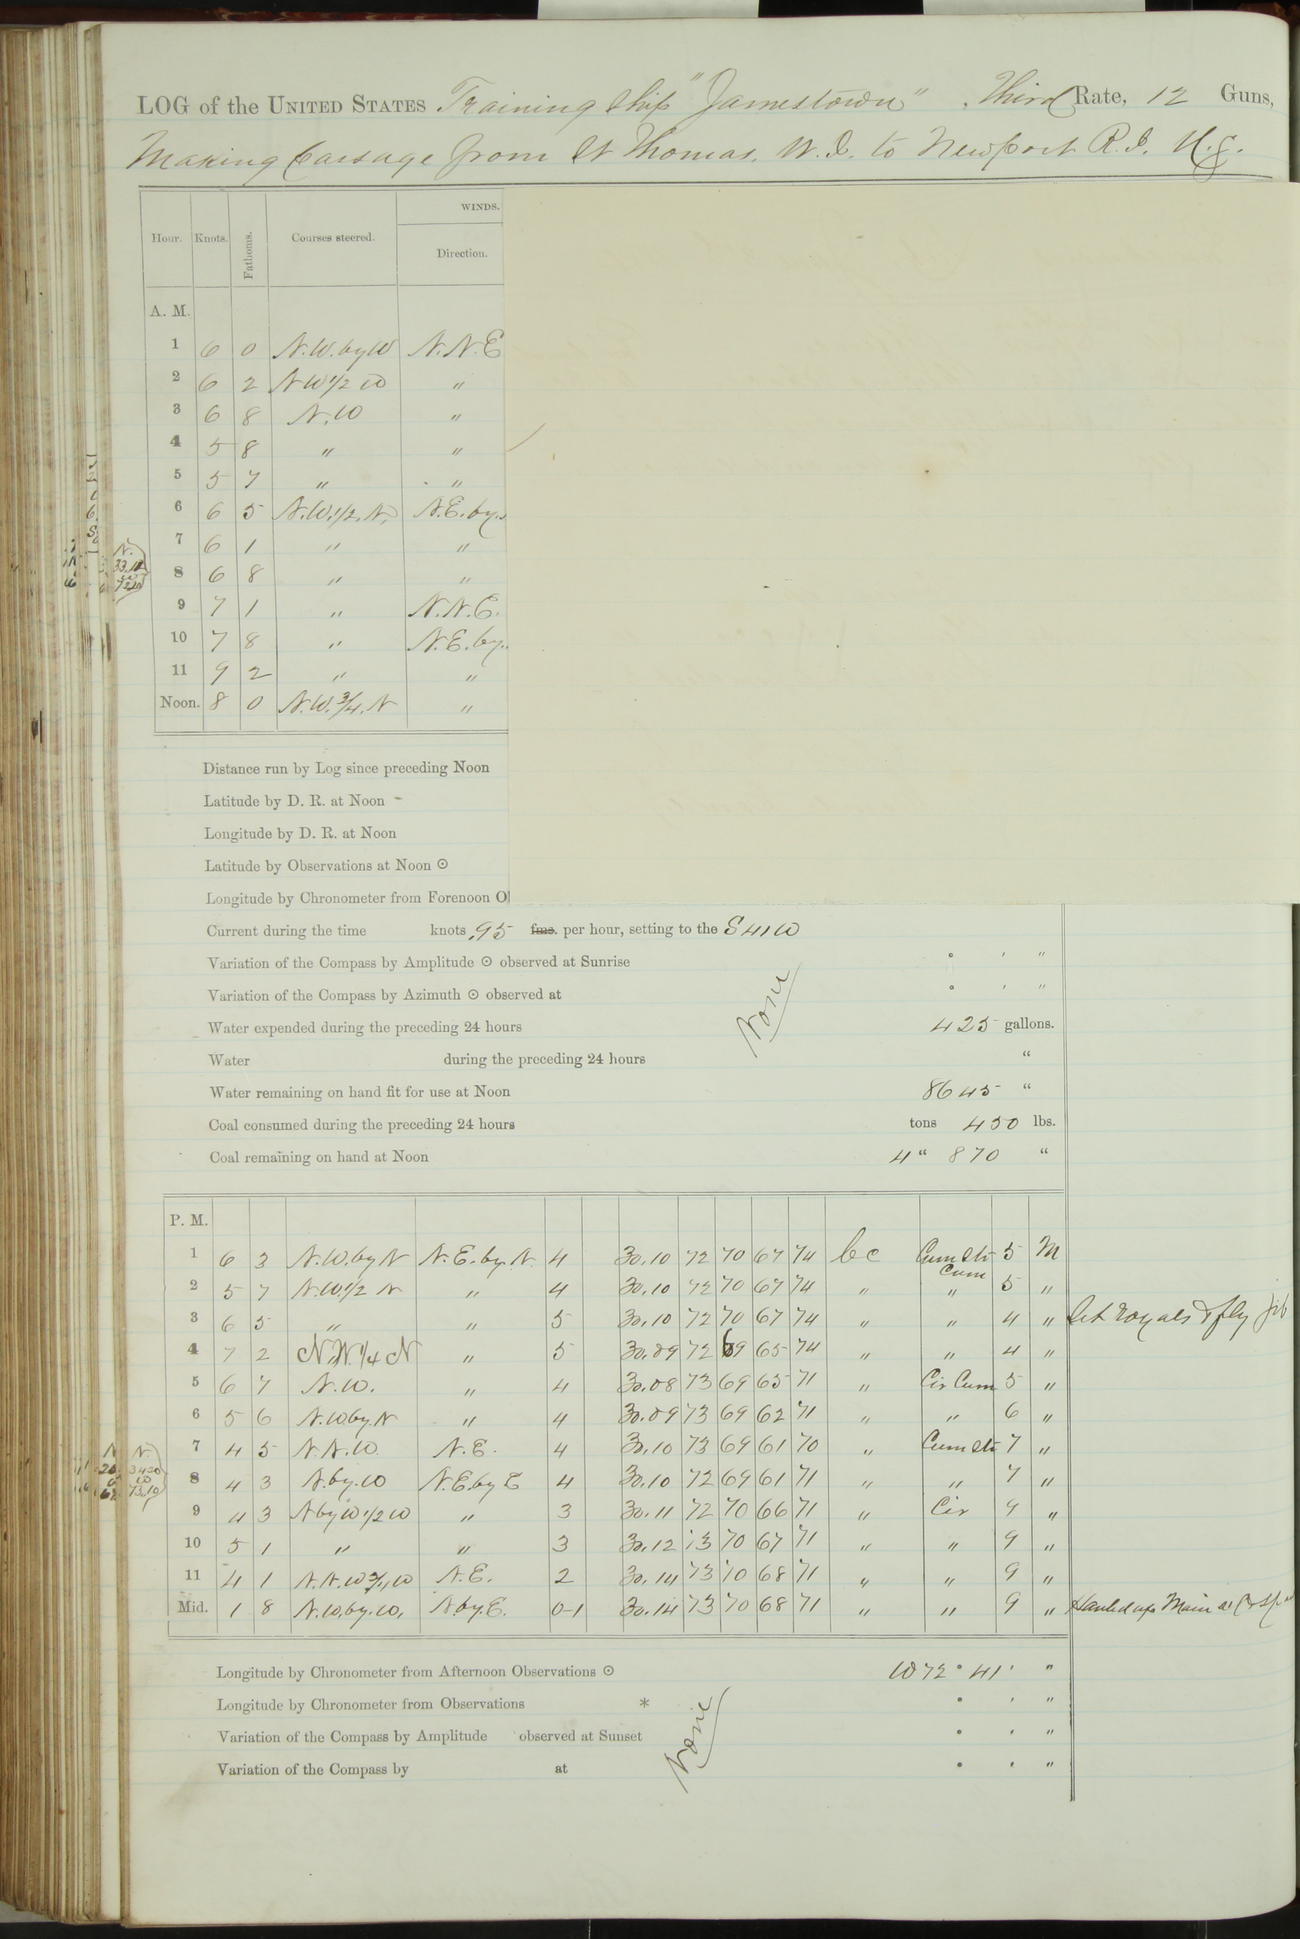 LOG of the UNITED STATES Training Ship "Jamestown", Third Rate, 12 Guns,
Making Passage from St Thomas. W.I. to Newport R.I. U.S.
WINDS.
Hour. Knots. Fathoms. Courses steered. Direction.
A. M.
1 6 0 N.W.byW N.N.E
2 6 2 NW1/2 W "
3 6 8 N.W "
4 5 8 " "
5 5 7 " "
6 6 5 N.W.1/2.N. N.E.by.
7 6 1 " "
8 6 8 " "
9 7 1 " N.N.E.
10 7 8 " N.E.by.
11 9 2 " "
Noon. 8 0 N.W.3/4.N "
Distance run by Log since preceding Noon
Latitude by D. R. at Noon -
Longitude by D. R. at Noon
Latitude by Observations at Noon ⊙
Longitude by Chronometer from Forenoon O
Current during the time knots .95 fms. per hour, setting to the S 41 W
Variation of the Compass by Amplitude ⊙ observed at Sunrise ° ' "
Variation of the Compass by Azimuth ⊙ observed at ° ' "
None
Water expended during the preceding 24 hours 425 gallons.
Water during the preceding 24 hours "
Water remaining on hand fit for use at Noon 8645 "
Coal consumed during the preceding 24 hours tons 450 lbs.
Coal remaining on hand at Noon 4 " 870 "
P. M.
1 6 3 N.W.byN N.E.by.N. 4 30.10 72 70 67 74 bc Cum Str 5 M
2 5 7 N.W.1/2 N " 4 30.10 72 70 67 74 " Cum " 5 "
3 6 5 " " 5 30.10 72 70 67 74 " " 4 " Set royals & fly jib
4 7 2 N.W.1/4 N " 5 30.09 72 69 65 74 " " 4 "
5 6 7 N.W. " 4 30.08 73 69 65 71 " Cir Cum 5 "
6 5 6 N.W.by.N " 4 30.09 73 69 62 71 " " 6 "
7 4 5 N.N.W N.E. 4 30.10 73 69 61 70 " Cum Str 7 "
8 4 3 N.by.W N.E.by E 4 30.10 72 69 61 71 " " 7 "
9 4 3 NbyW1/2W " 3 30.11 72 70 66 71 " Cir 9 "
10 5 1 " " 3 30.12 73 70 67 71 " " 9 "
11 4 1 N.N.W3/4W N.E. 2 30.14 73 70 68 71 " " 9 "
Mid. 1 8 N.W.by.W. N.by.E. 0-1 30.14 73 70 68 71 " " 9 " Hauled up Main
Longitude by Chronometer from Afternoon Observations ⊙ W 72 ° 41 ' "
Longitude by Chronometer from Observations * ° ' "
Variation of the Compass by Amplitude observed at Sunset ° ' "
None
Variation of the Compass by at ° ' "